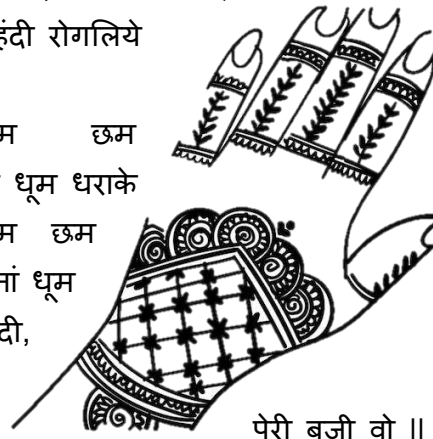 हंदी रोगलिये
म छम
धूम धराके
म छम
नां धूम
दी,
पेरी बजी वो ॥